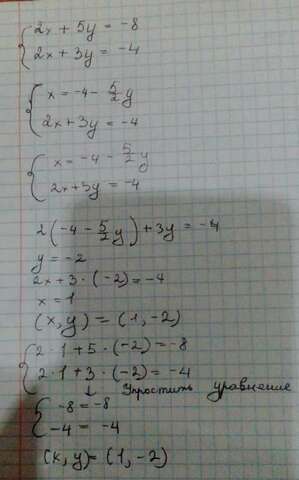 {2x + 5y = -8
{2x + 3y = -4
{x = -4 - 5/2 y
{2x + 3y = -4
{x = -4 - 5/2 y
{2x + 3y = -4
2(-4 - 5/2 y) + 3y = -4
y = -2
2x + 3 · (-2) = -4
x = 1
(x, y) = (1, -2)
{2 · 1 + 5 · (-2) = -8
{2 · 1 + 3 · (-2) = -4
↓ Упростить уравнение
{-8 = -8
{-4 = -4
(x, y) = (1, -2)